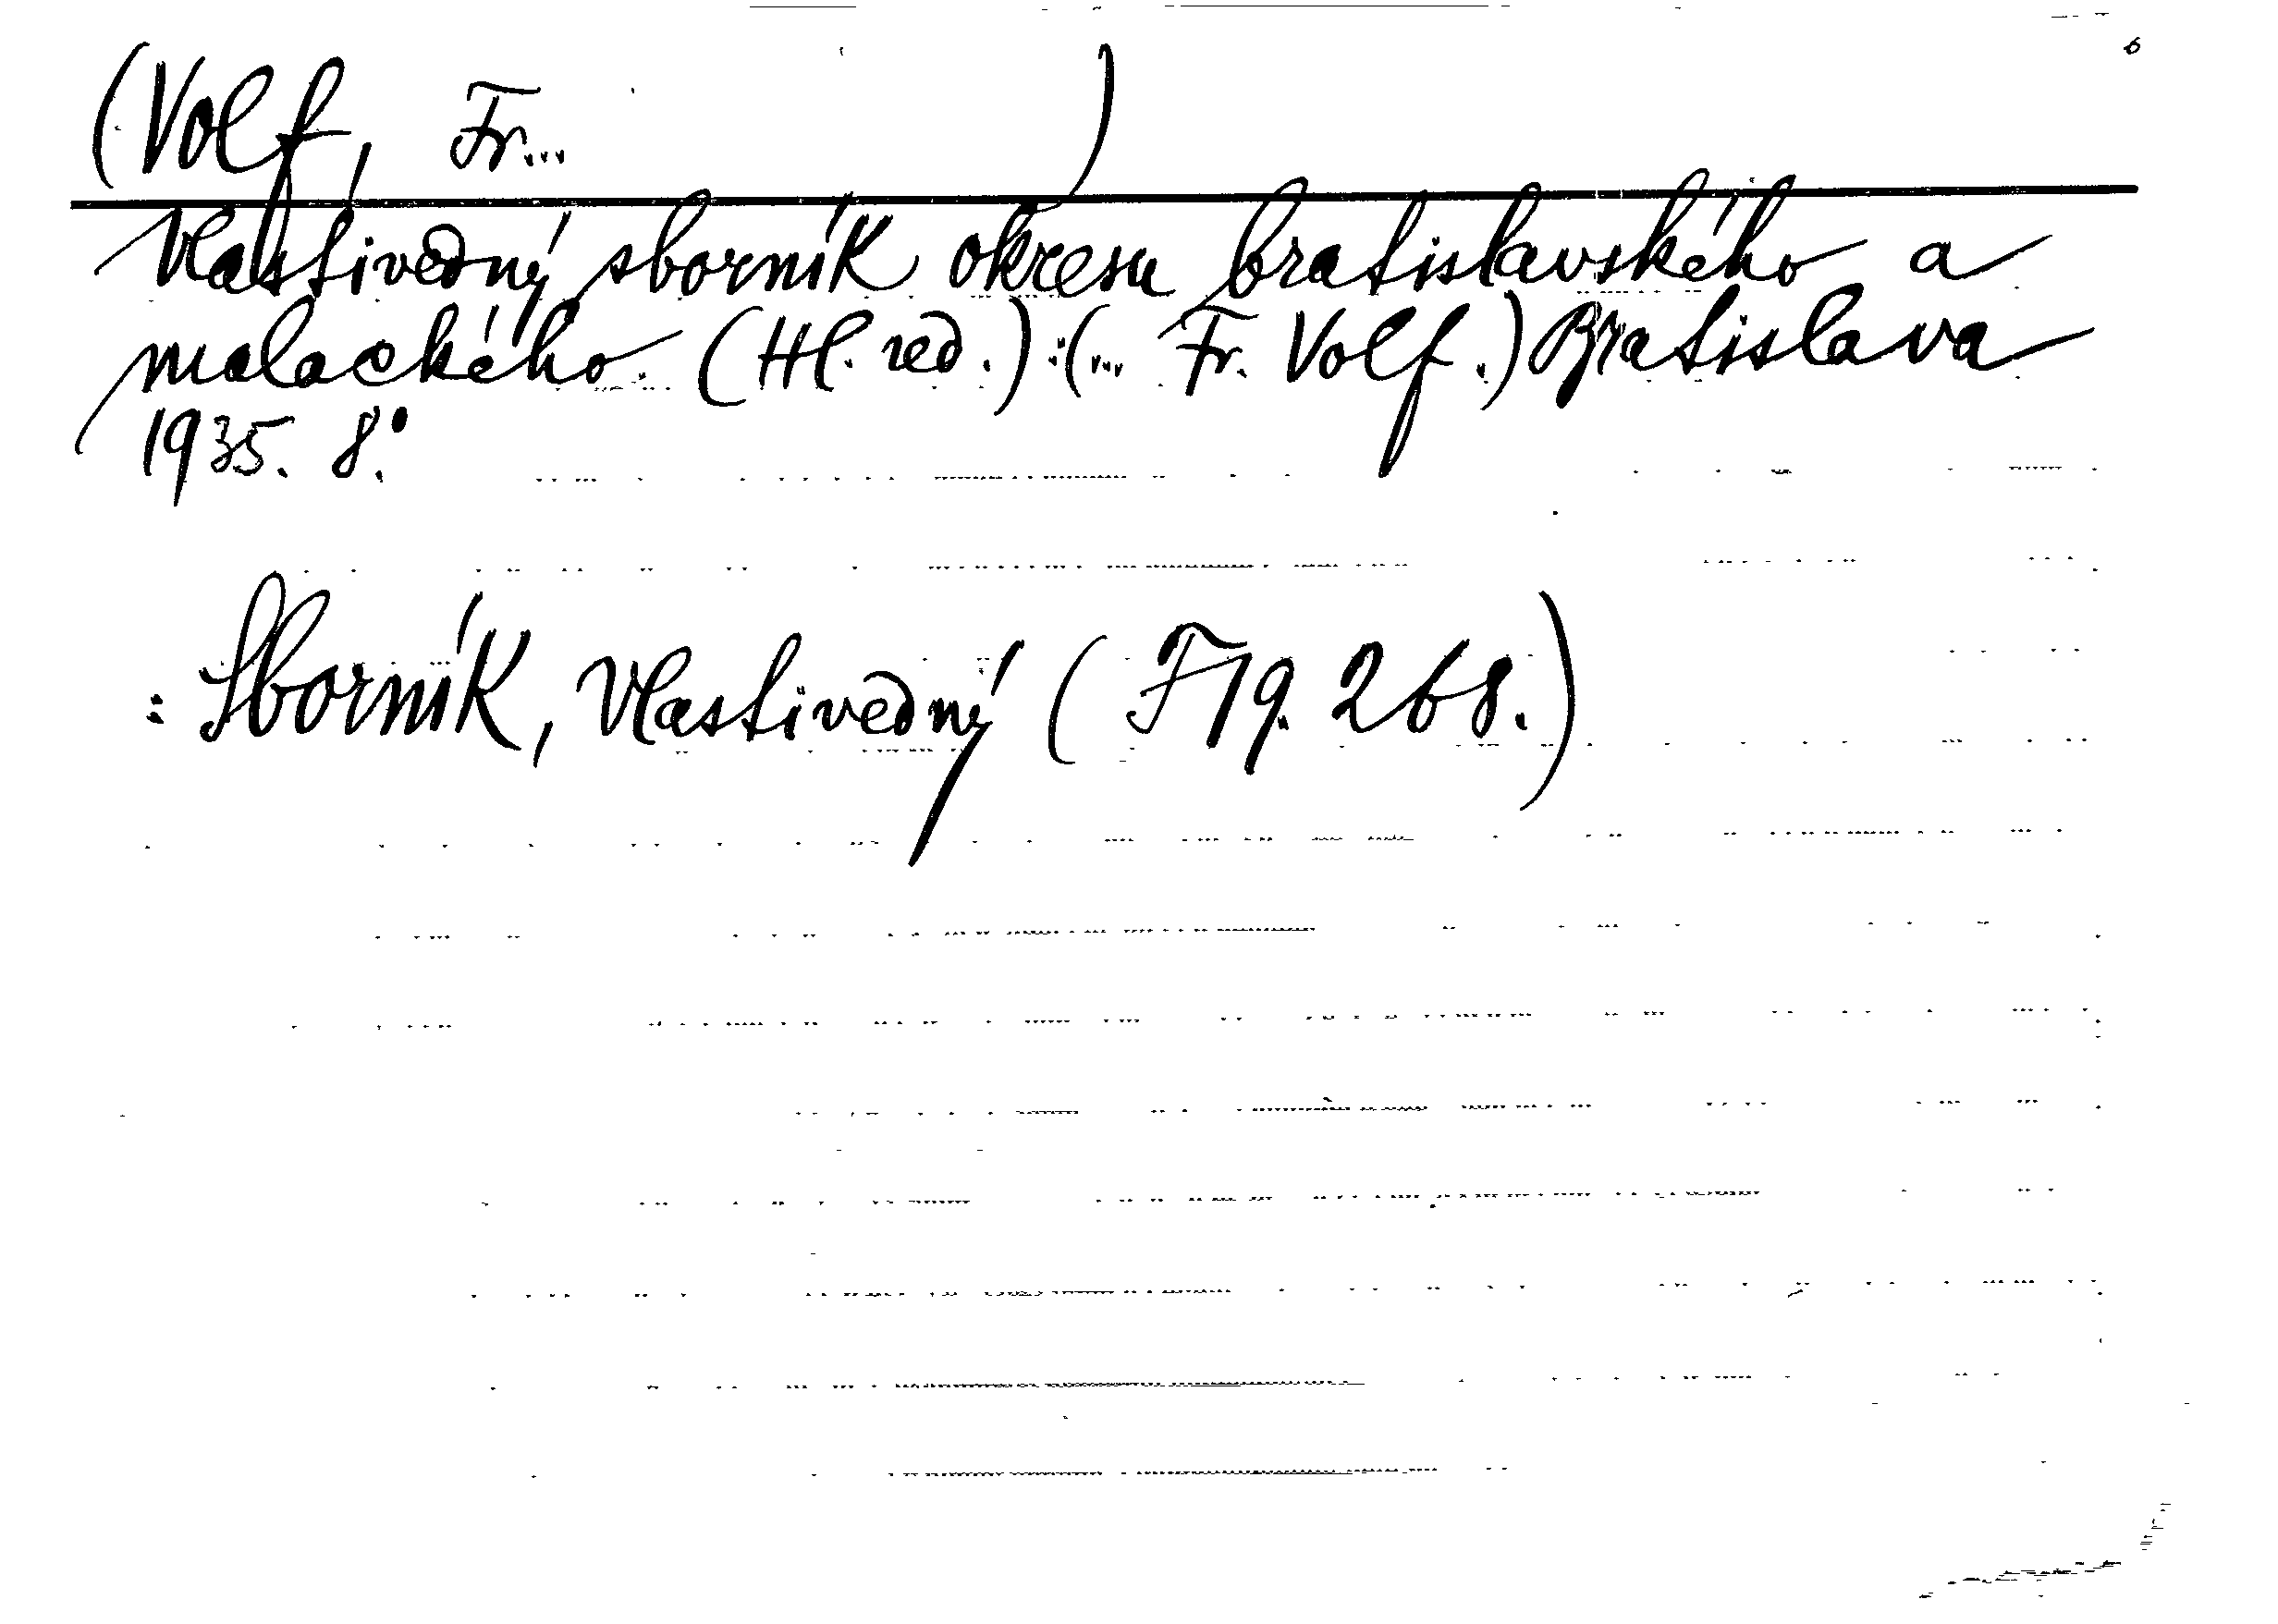 (Volf, Fr... )
Vlastivedný sborník okresu bratislavského a
malackého. (Hl. red.):(... Fr. Volf.) Bratislava
1935. 8°.
: Sborník, Vlastivedný (F 19. 268.)